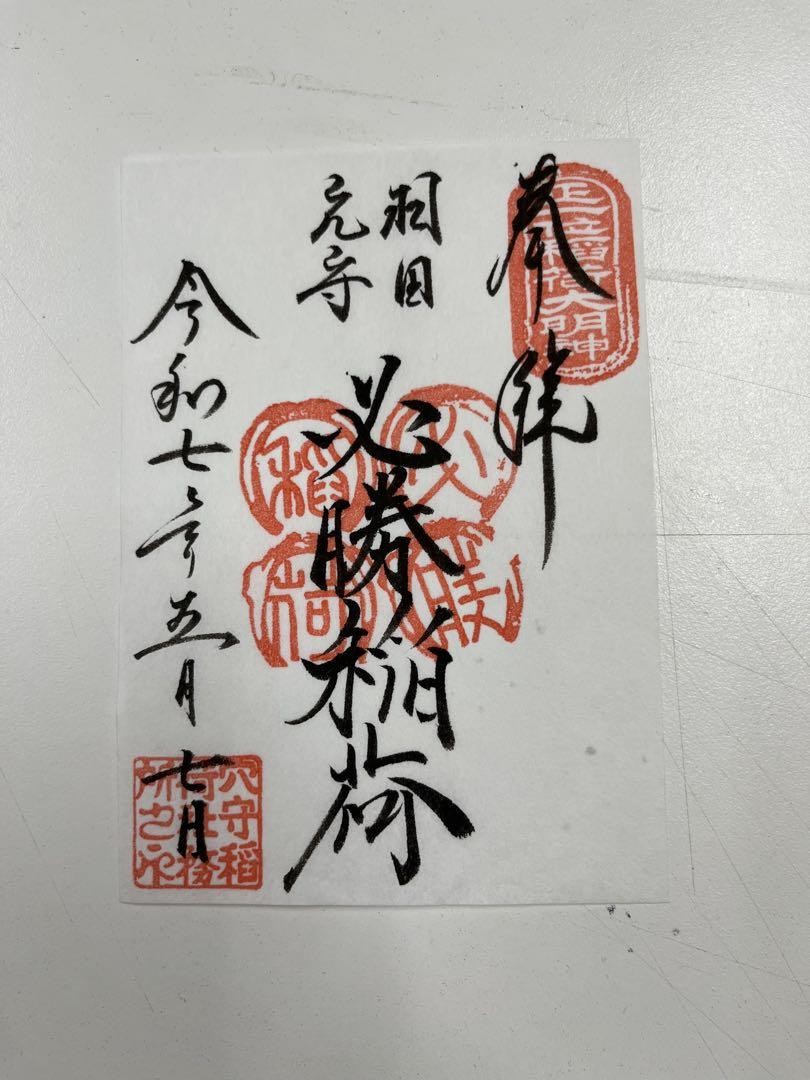 奉拝
正一位稲荷大明神
羽田
穴守
必勝稲荷
必勝
稲荷
令和七年五月七日
穴守稲
荷社務
所之印